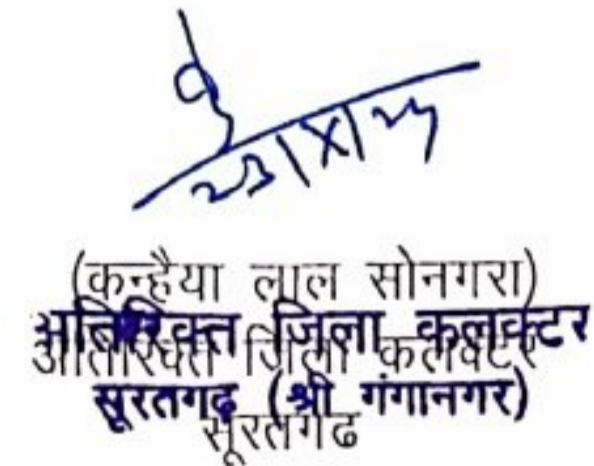 23/X/25
(कन्हैया लाल सोनगरा)
अतिरिक्त जिला कलक्टर
अतिरिक्त जिला कलक्टर
सूरतगढ़ (श्री गंगानगर)
सूरतगढ